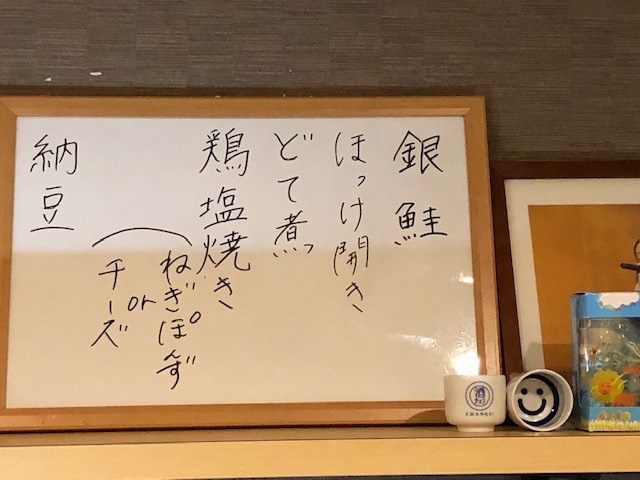 銀鮭
ほっけ開き
どて煮
鶏塩焼き
ねぎぽんず
or
チーズ
納豆
CHANGI